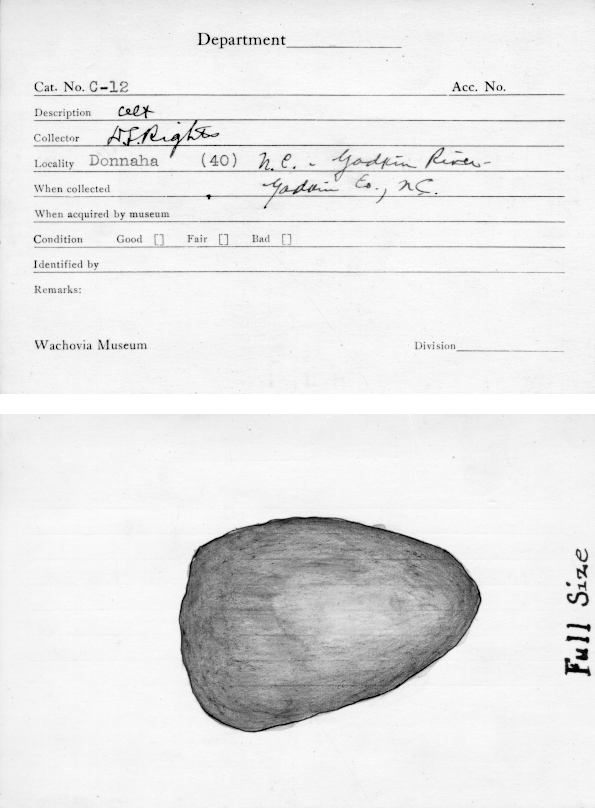 Department
Cat. No. C-12 Acc. No.
Description celt
Collector D.L. Rights
Locality Donnaha (40) N.C. - Yadkin River -
When collected Yadkin Co., N.C.
When acquired by museum
Condition Good [] Fair [] Bad []
Identified by
Remarks:
Wachovia Museum Division
Full Size